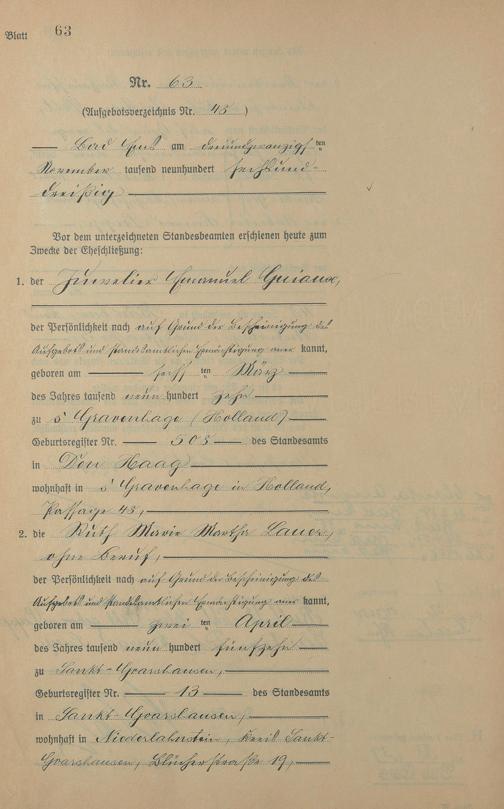 Blatt 63
Nr. 63
(Aufgebotsverzeichnis Nr. 45)
Bad Ems am dreiundzwanzigsten
November tausend neunhundert sechsund-
dreißig
Vor dem unterzeichneten Standesbeamten erschienen heute zum
Zwecke der Eheschließung:
1. der Juwelier Emanuel
der Persönlichkeit nach auf Grund der Bescheinigung des
Aufgebots und standesamtlichen Ermächtigung aner kannt,
geboren am ten März
des Jahres tausend neun hundert zehn
zu s'Gravenhage (Holland)
Geburtsregister Nr. 503 des Standesamts
in Den Haag
wohnhaft in s'Gravenhage in Holland,
Passage 45,
2. die Ruth Marie Martha Lauer,
ohne Beruf,
der Persönlichkeit nach auf Grund der Bescheinigung des
Aufgebots und standesamtlichen Ermächtigung aner kannt,
geboren am zwei ten April
des Jahres tausend neun hundert fünfzehn
zu Sankt-Goarshausen,
Geburtsregister Nr. 13 des Standesamts
in Sankt-Goarshausen,
wohnhaft in Niederlahnstein, Kreis Sankt-
Goarshausen, Blücherstraße 19,